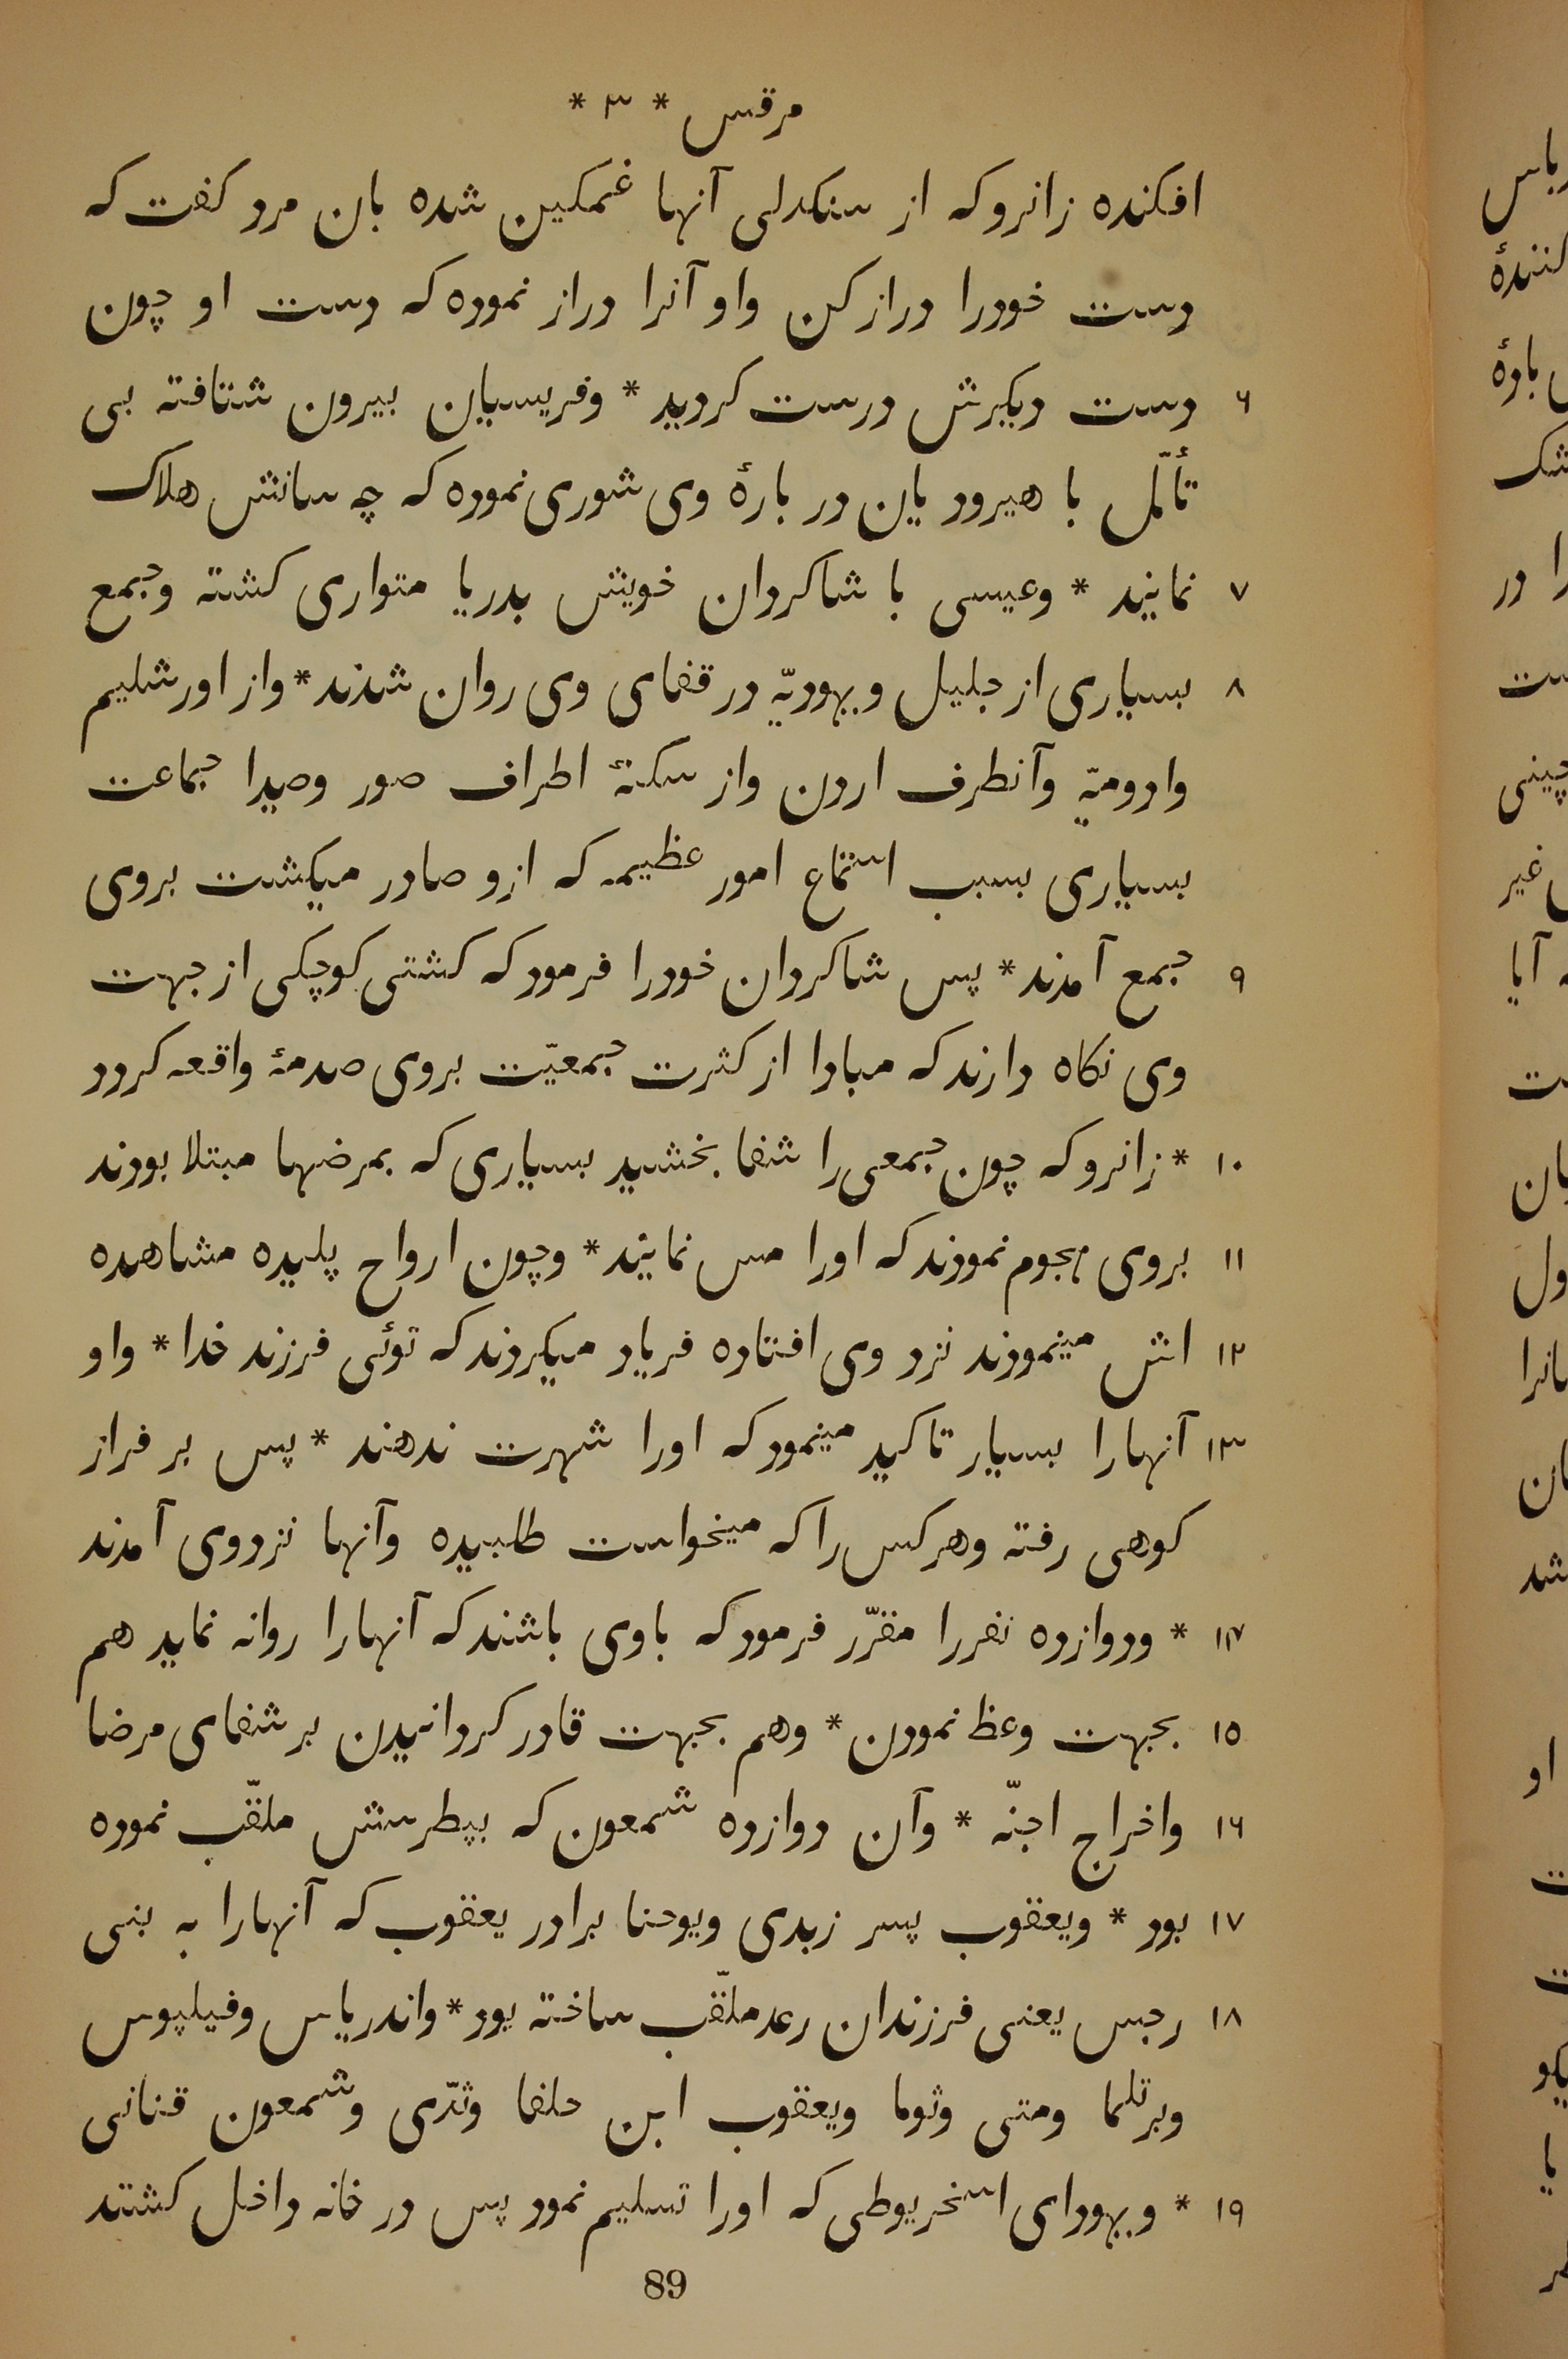 مرقس * ٣ *
افکنده زانروکه از سنکدلی آنها غمکین شده بان مرد کفت که
دست خودرا دراز کن واو آنرا دراز نموده که دست او چون
٦ دست دیکرش درست کردید * وفریسیان بیرون شتافته بی
تأمّل با هیرودیان در بارهٔ وی شوری نموده که چه سانش هلاک
٧ نمایند * وعیسی با شاکردان خویش بدریا متواری کشته وجمع
٨ بسیاری از جلیل ویهودیّه در قفای وی روان شدند * واز اورشلیم
وادومیّه وآنطرف اردن واز سکنهٔ اطراف صور وصیدا جماعت
بسیاری بسبب استماع امور عظیمه که ازو صادر میکشت بروی
٩ جمع آمدند * پس شاکردان خودرا فرمود که کشتی کوچکی از جهت
وی نکاه دارند که مبادا از کثرت جمعیّت بروی صدمهٔ واقعه کردد
١٠ * زانروکه چون جمعی را شفا بخشید بسیاری که بمرضها مبتلا بودند
١١ بروی هجوم نمودند که اورا مس نمایند * وچون ارواح پلیده مشاهده
١٢ اش مینمودند نزد وی افتاده فریاد میکردند که توئی فرزند خدا * واو
١٣ آنهارا بسیار تاکید مینمود که اورا شهرت ندهند * پس بر فراز
کوهی رفته وهرکس را که میخواست طلبیده وآنها نزد وی آمدند
١٤ * ودوازده نفررا مقرّر فرمود که باوی باشند که آنهارا روانه نماید هم
١٥ بجهت وعظ نمودن * وهم بجهت قادر کردانیدن بر شفای مرضا
١٦ واخراج اجنّه * وآن دوازده شمعون که بپطرسش ملقّب نموده
١٧ بود * ویعقوب پسر زبدی ویوحنا برادر یعقوب که آنهارا به بنی
١٨ رجس یعنی فرزندان رعد ملقّب ساخته بود * واندریاس وفیلپوس
وبرتلما ومتی وثوما ویعقوب ابن حلفا وثدّی وشمعون قنانی
١٩ * ویهودای اسخریوطی که اورا تسلیم نمود پس در خانه داخل کشتند
89